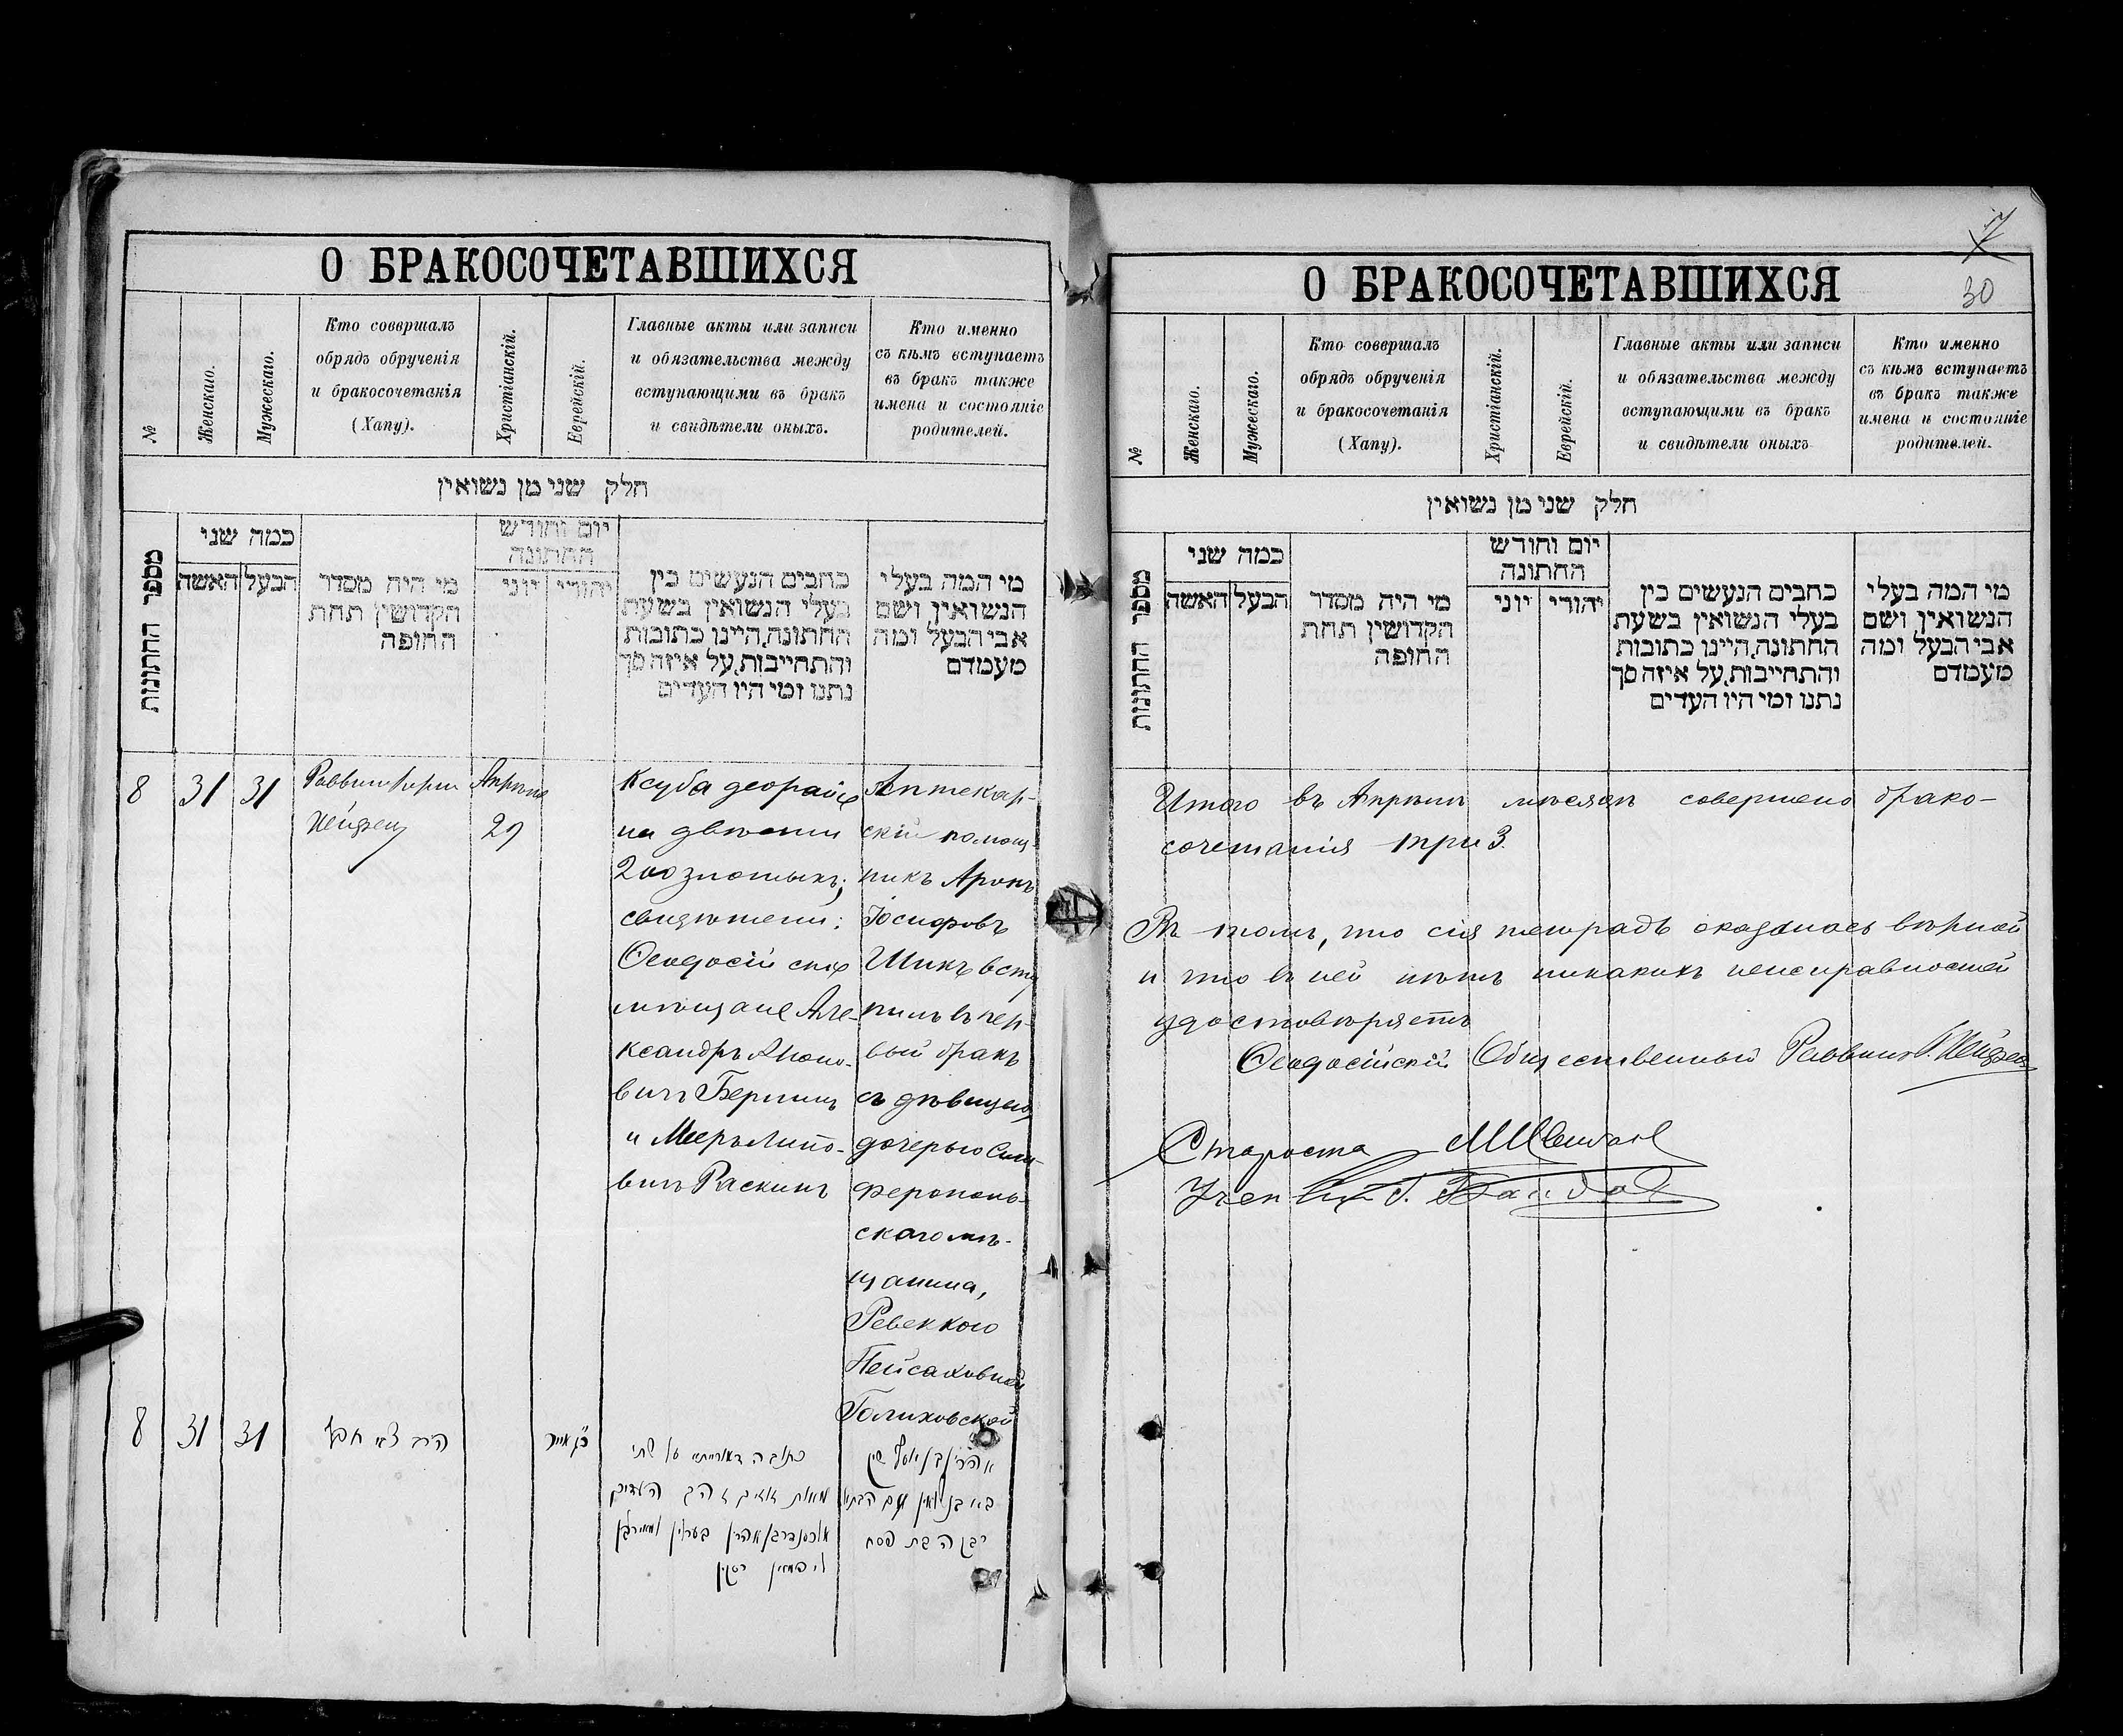 О БРАКОСОЧЕТАВШИХСЯ
№
Женскаго.
Мужескаго.
Кто совершалъ
обрядъ обрученія
и бракосочетанія
(Хапу).
Христіанскій.
Еврейскій.
Главные акты или записи
и обязательства между
вступающими въ бракъ
и свидѣтели оныхъ.
Кто именно
съ кѣмъ вступаетъ
въ бракъ также
имена и состояніе
родителей.
חלק שני מן נשואין
מספר החתונות
כמה שני
האשה
הבעל
מי היה מסדר
הקדושין תחת
החופה
יום וחודש
החתונה
יוני
יהודי
כתבים הנעשים בין
בעלי הנשואין בשעת
החתונה, היינו כתובות
והתחייבות, על איזה סך
נתנו ומי היו העדים
מי המה בעלי
הנשואין ושם
אבי הבעל ומה
מעמדם
8
31
31
Раввинъ
Нейфец
Апрѣля
29
Ксуба деорайсе
на двѣсти
200 злотыхъ;
свидѣтели:
Ѳеодосійскіе
мѣщане Але-
ксандръ
вичъ
и Меръ Липо-
вичъ Раскинъ
Аптекар-
скій помощ-
никъ Аронъ
Іосифовъ
Шикъ всту
пилъ въ пер-
вый бракъ
съ дѣвицею
дочерью Сим-
ферополь-
скаго мѣ-
щанина,
Ревеккою
Пейсаховной
Голиховской
8
31
31
הרב צבי חפץ
אייר
כתובה דאורייתא על שתי
מאות זהב העדים
אלכסנדר בן אהרן
אהרן בן יוסף שיק
רבקה בת פסח
7
30
О БРАКОСОЧЕТАВШИХСЯ
№
Женскаго.
Мужескаго.
Кто совершалъ
обрядъ обрученія
и бракосочетанія
(Хапу).
Христіанскій.
Еврейскій.
Главные акты или записи
и обязательства между
вступающими въ бракъ
и свидѣтели оныхъ
Кто именно
съ кѣмъ вступаетъ
въ бракъ также
имена и состояніе
родителей.
חלק שני מן נשואין
מספר החתונות
כמה שני
האשה
הבעל
מי היה מסדר
הקדושין תחת
החופה
יום וחודש
החתונה
יוני
יהודי
כתבים הנעשים בין
בעלי הנשואין בשעת
החתונה, היינו כתובות
והתחייבות, על איזה סך
נתנו ומי היו העדים
מי המה בעלי
הנשואין ושם
אבי הבעל ומה
מעמדם
Итого въ Апрѣлѣ мѣсяцѣ совершено брако-
сочетанія три 3.
Въ томъ, что сія тетрадь оказалась вѣрной
и что въ ней нѣтъ никакихъ неисправностей
удостовѣряетъ
Ѳеодосійскій Общественный Раввинъ Г. Нейфец
Староста
Учен